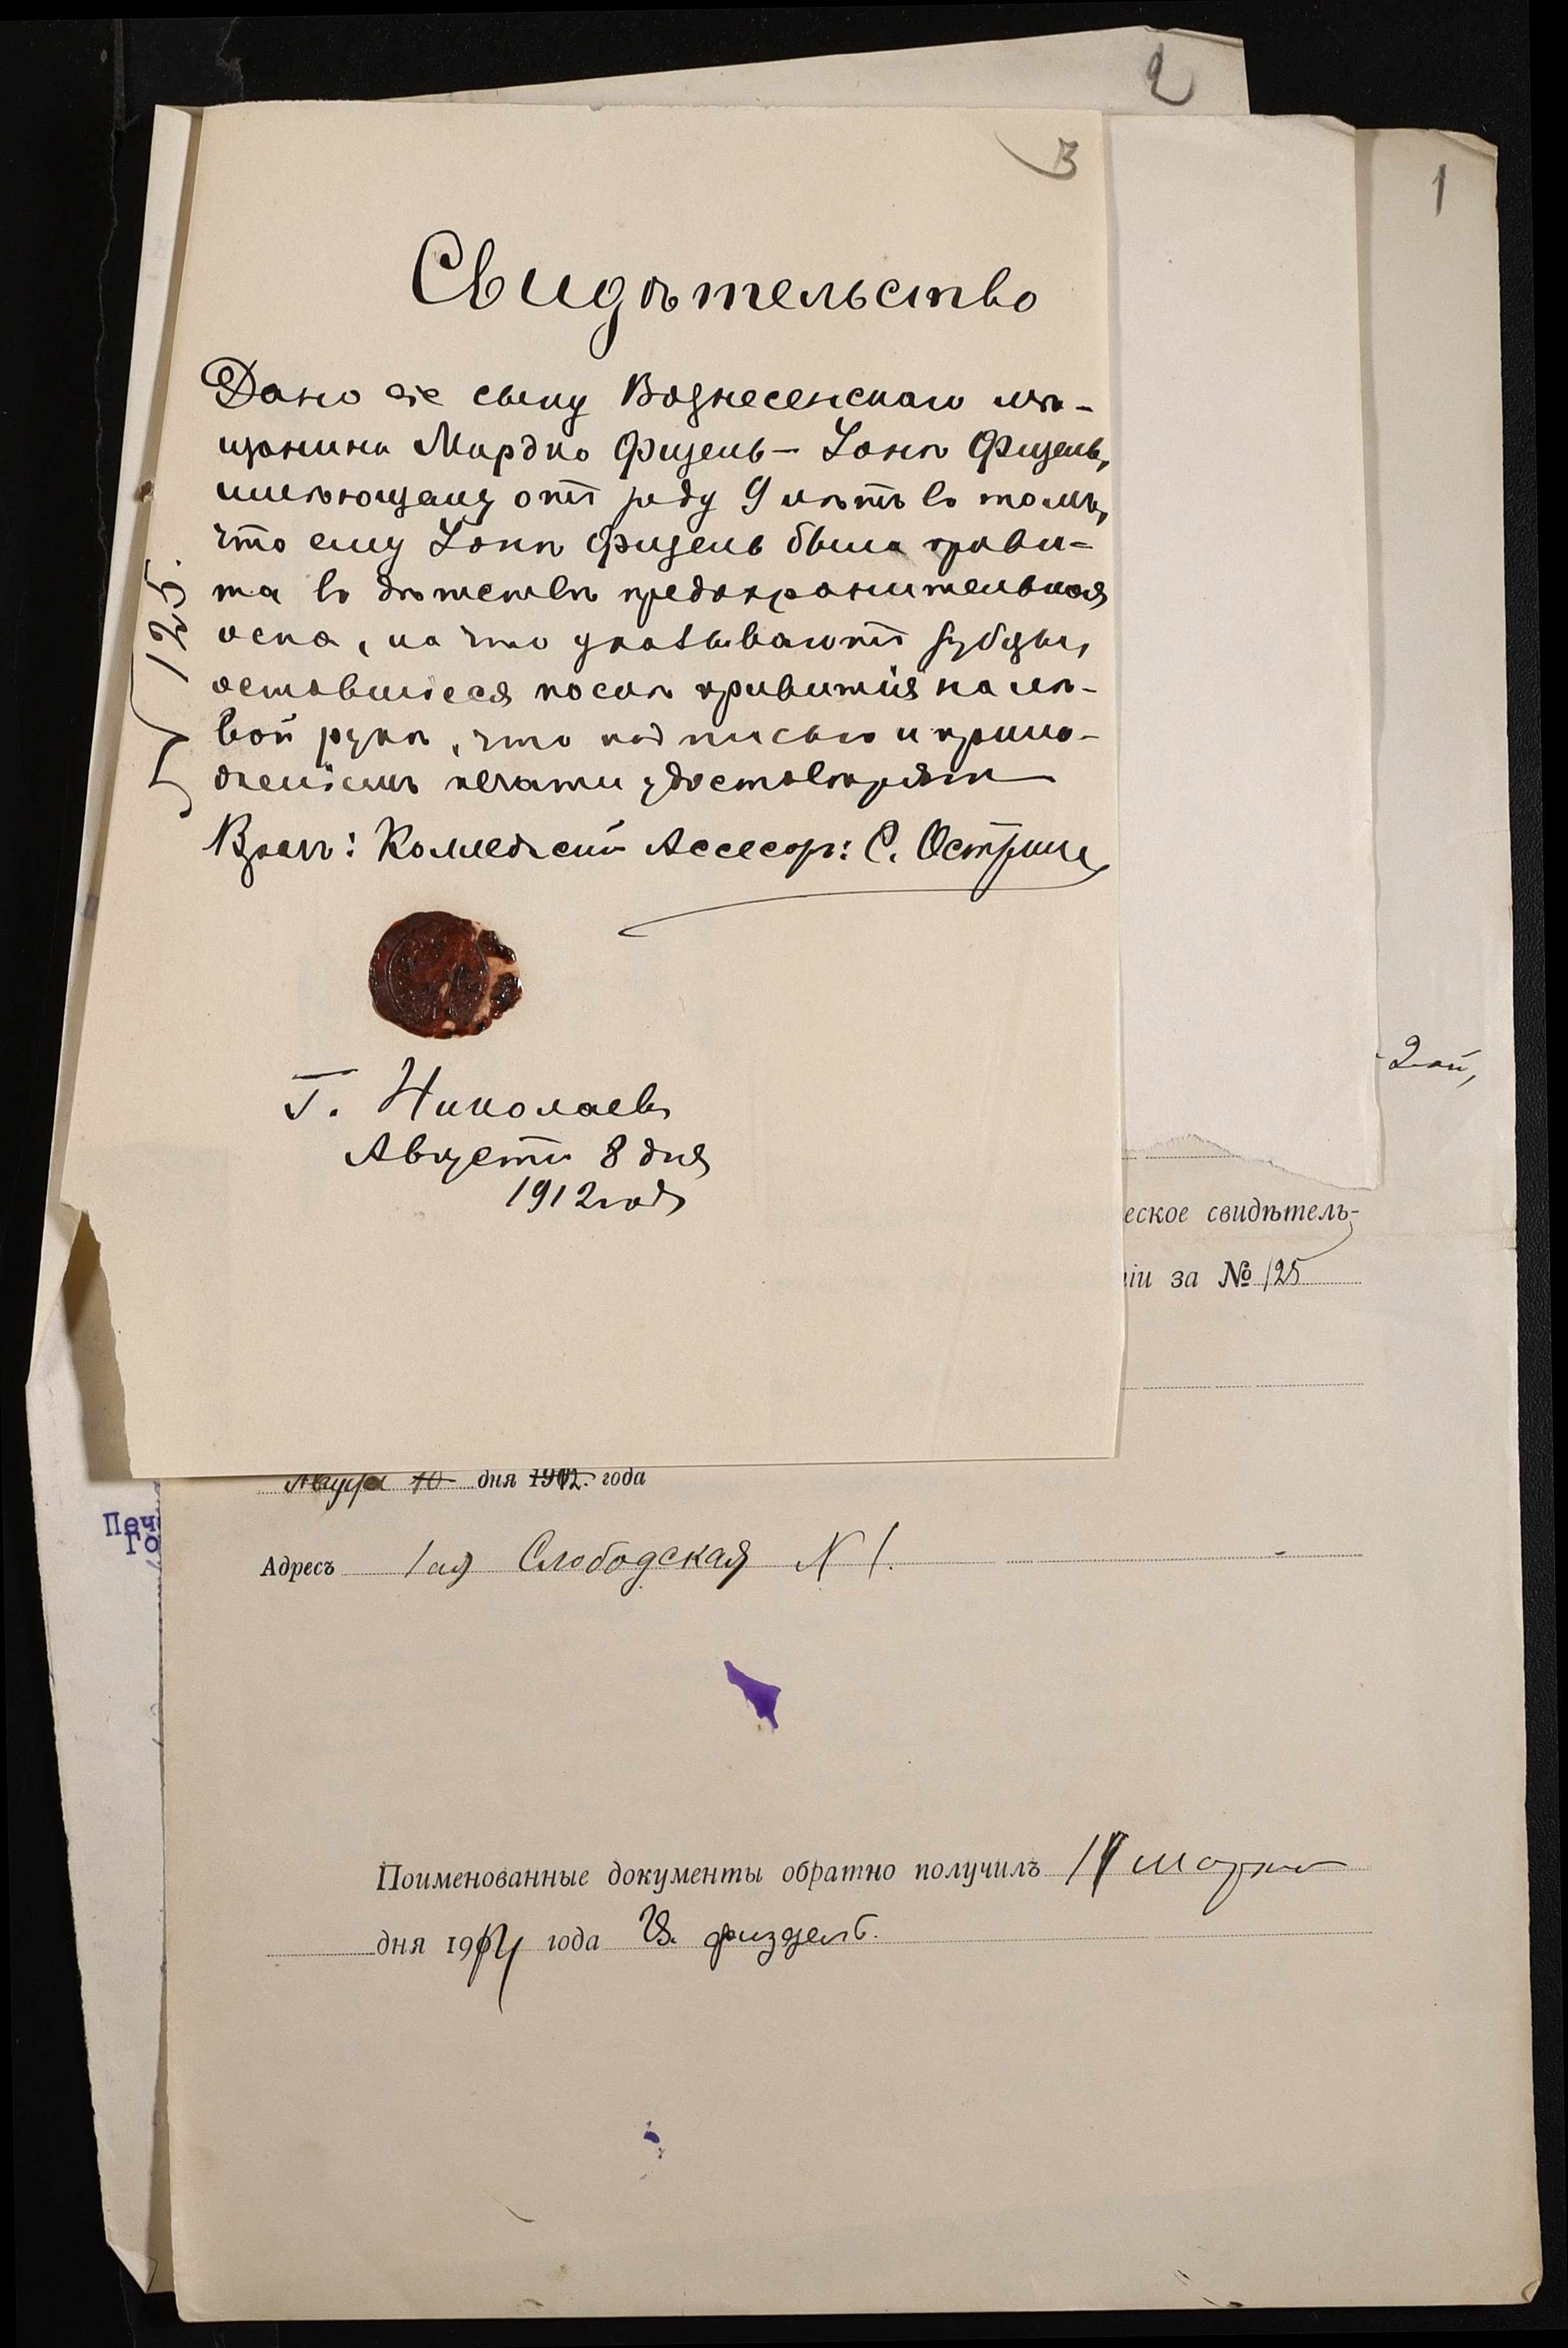 2
3
1
Свидѣтельство
Дано сіе сыну Вознесенскаго мѣ-
щанина Мардко Физель — Іонѣ Физель,
имѣющему отъ роду 9 лѣтъ въ томъ,
что ему Іонѣ Физель была приви-
та въ дѣтствѣ предохранительная
оспа, на что указываютъ рубцы,
оставшіеся послѣ привитія на лѣ-
вой рукѣ, что подписью и прило-
женіемъ печати удостовѣряю
Врачъ: Коллежскій Ассесоръ: С.
125.
Г. Николаевъ
Августа 8 дня
1912 года
2-ой,
еское свидѣтель-
іи за № 125
Августа 10 дня 1912. года
Печ
Го
Адресъ 1ая Слободская N 1.
Поименованные документы обратно получилъ марта
дня 1914 года физдель.